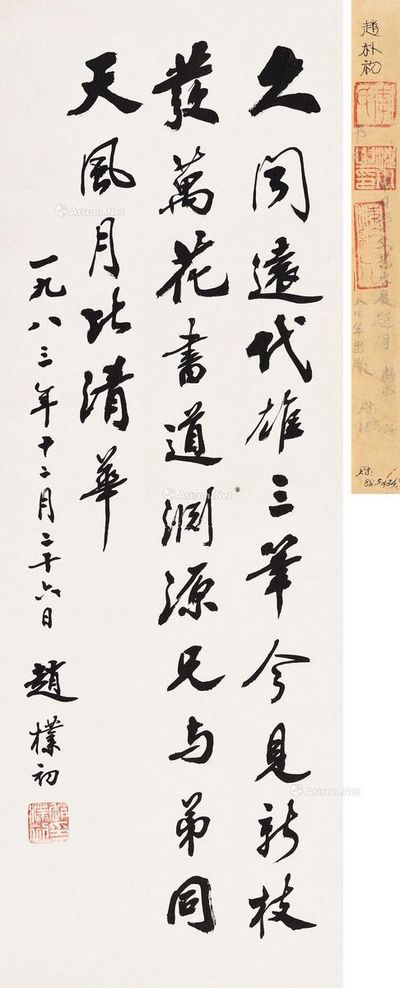 久闻遠代雄三筆今見新枝
發萬花書道淵源兄与弟同
天風月比清華
一九八三年十二月二十六日 趙樸初
趙朴初
Artron.Net